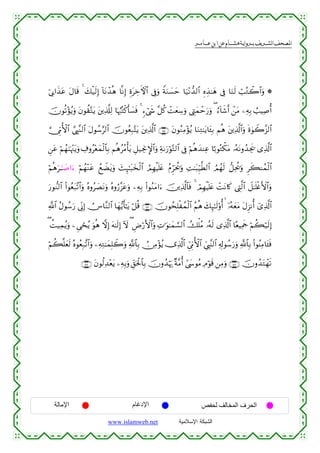 المصحف الشريف برواية هشام عن ابن عامر
۞ وَٱكْتُبْ لَنَا فِى هَٰذِهِ ٱلدُّنْيَا حَسَنَةً وَفِى ٱلْأَخِرَةِ إِنَّا هُدْنَآ إِلَيْكَ ۚ قَالَ عَذَابِىٓ
أُصِيبُ بِهِۦ مَنْ أَشَآءُ ۖ وَرَحْمَتِى وَسِعَتْ كُلَّ شَىْءٍ ۚ فَسَأَكْتُبُهَا لِلَّذِينَ يَتَّقُونَ وَيُؤْتُونَ
ٱلزَّكَوٰةَ وَٱلَّذِينَ هُم بِـَٔايَٰتِنَا يُؤْمِنُونَ ٱلَّذِينَ يَتَّبِعُونَ ٱلرَّسُولَ ٱلنَّبِىَّ ٱلْأُمِّىَّ
ٱلَّذِى يَجِدُونَهُۥ مَكْتُوبًا عِندَهُمْ فِى ٱلتَّوْرَىٰةِ وَٱلْإِنجِيلِ يَأْمُرُهُم بِٱلْمَعْرُوفِ وَيَنْهَىٰهُمْ عَنِ
ٱلْمُنكَرِ وَيُحِلُّ لَهُمُ ٱلطَّيِّبَٰتِ وَيُحَرِّمُ عَلَيْهِمُ ٱلْخَبَٰٓئِثَ وَيَضَعُ عَنْهُمْ ءَاصَٰرَهُمْ
وَٱلْأَغْلَٰلَ ٱلَّتِى كَانَتْ عَلَيْهِمْ ۚ فَٱلَّذِينَ ءَامَنُوا۟ بِهِۦ وَعَزَّرُوهُ وَنَصَرُوهُ وَٱتَّبَعُوا۟ ٱلنُّورَ
ٱلَّذِىٓ أُنزِلَ مَعَهُۥٓ ۙ أُو۟لَٰٓئِكَ هُمُ ٱلْمُفْلِحُونَ قُلْ يَٰٓأَيُّهَا ٱلنَّاسُ إِنِّى رَسُولُ ٱللَّهِ
إِلَيْكُمْ جَمِيعًا ٱلَّذِى لَهُۥ مُلْكُ ٱلسَّمَٰوَٰتِ وَٱلْأَرْضِ ۖ لَآ إِلَٰهَ إِلَّا هُوَ يُحْىِۦ وَيُمِيتُ ۖ
فَـَٔامِنُوا۟ بِٱللَّهِ وَرَسُولِهِ ٱلنَّبِىِّ ٱلْأُمِّىِّ ٱلَّذِى يُؤْمِنُ بِٱللَّهِ وَكَلِمَٰتِهِۦ وَٱتَّبِعُوهُ لَعَلَّكُمْ
تَهْتَدُونَ وَمِن قَوْمِ مُوسَىٰٓ أُمَّةٌ يَهْدُونَ بِٱلْحَقِّ وَبِهِۦ يَعْدِلُونَ
الحرف المخالف لحفص الإدغام الإمالة
الشبكة الإسلامية www.islamweb.net